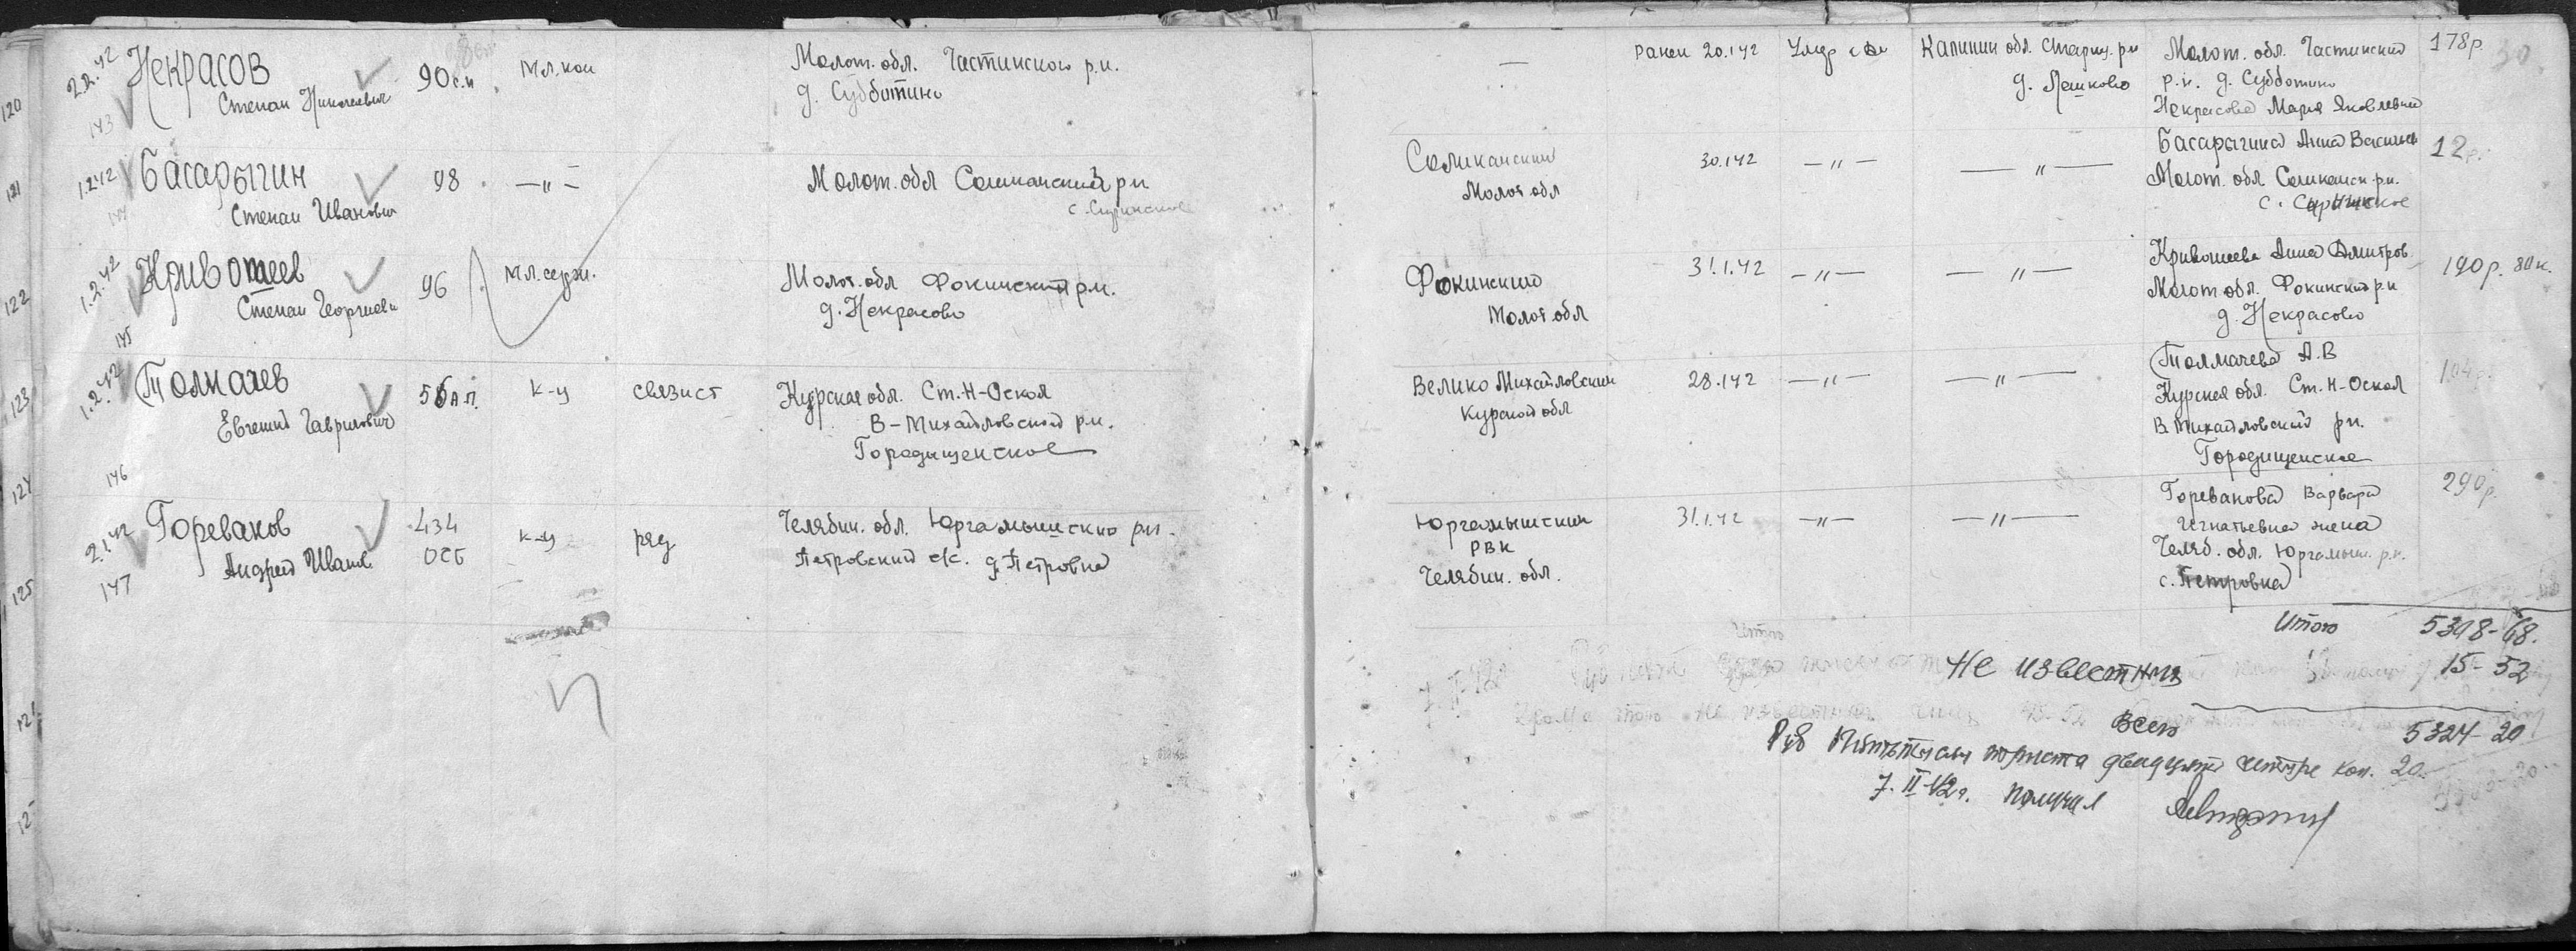 120 2.2.42 Некрасов 90 с.п Мл.ком Молот. обл. Частинского р.н. — Ранен 20.1 42 Калинин обл. Стариц. рн Молот. обл. Частинский 178р.
143 Степан Николаевич д. Субботино д. Лешково р.н. д. Субботино
Некрасова Мария Яковлевна
121 1.2.42 Басарыгин 98 —"— Молот. обл Соликамский рн Соликамский 30.1 42 —"— —"— Басарыгина Анна Васильев 12р.
144 Степан Иванович Молот обл Молот. обл Соликамск. р.н.
с.
122 1.2.42 Кривошеев 96 Мл. серж. Молот. обл Фокинский р.н. Фокинский 31.1.42 —"— —"— Кривошеева Анна Дмитров. 190р. 80 к.
145 Степан Георгиеви д. Некрасово Молот. обл Молот обл. Фокинский рн
д. Некрасово
123 1.2.42 Толмачев А.П. к-ц связист Курская обл. Ст. Н-Оскол Велико Михайловский 28.1 42 —"— —"— Толмачева А.В 104р.
Евгений Гаврилович В-Михайловский р.н. Курской обл Курская обл. Ст. Н-Оскол
Городищенское В Михайловский рн.
146 Городищенское
124 2.1.42 Горевалов 434 к-ц ряд Челябин. обл. Юргамышский рн. Юргамышский 31.1.42 —"— —"— Горевалова Варвара 290р.
147 Андрей Иванов. ОСБ Петровский с/с. д. Петровка РВК Игнатьевна жена
Челябин. обл. Челяб. обл. Юргамыш. р.н.
125 с. Петровка
Итого 5308-68.
Не известный 15-52
Всего 5324-20
Руб Пять тысяч триста двадцать четыре коп. 20
7.II-42г. получил